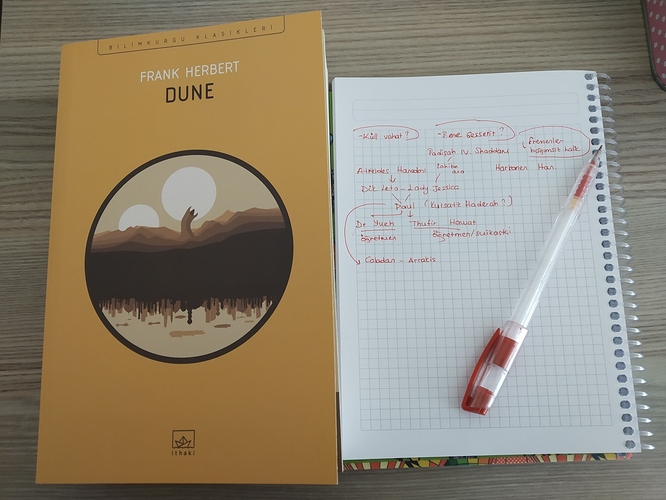 BİLİMKURGU KLASİKLERİ
FRANK HERBERT
DUNE
ithaki
-Küll vahat?
-Bene Gesserit?
Fremenler-
bağımsız halk
Padişah IV. Shaddam
Atreides Hanedanı
Harkonen Han.
Dük Leto - Lady Jessica
Paul (Kuisatz Haderah?)
Dr Yueh
Thufir Hawat
öğretmen
öğretmen/suikastçi
Caladan - Arrakis